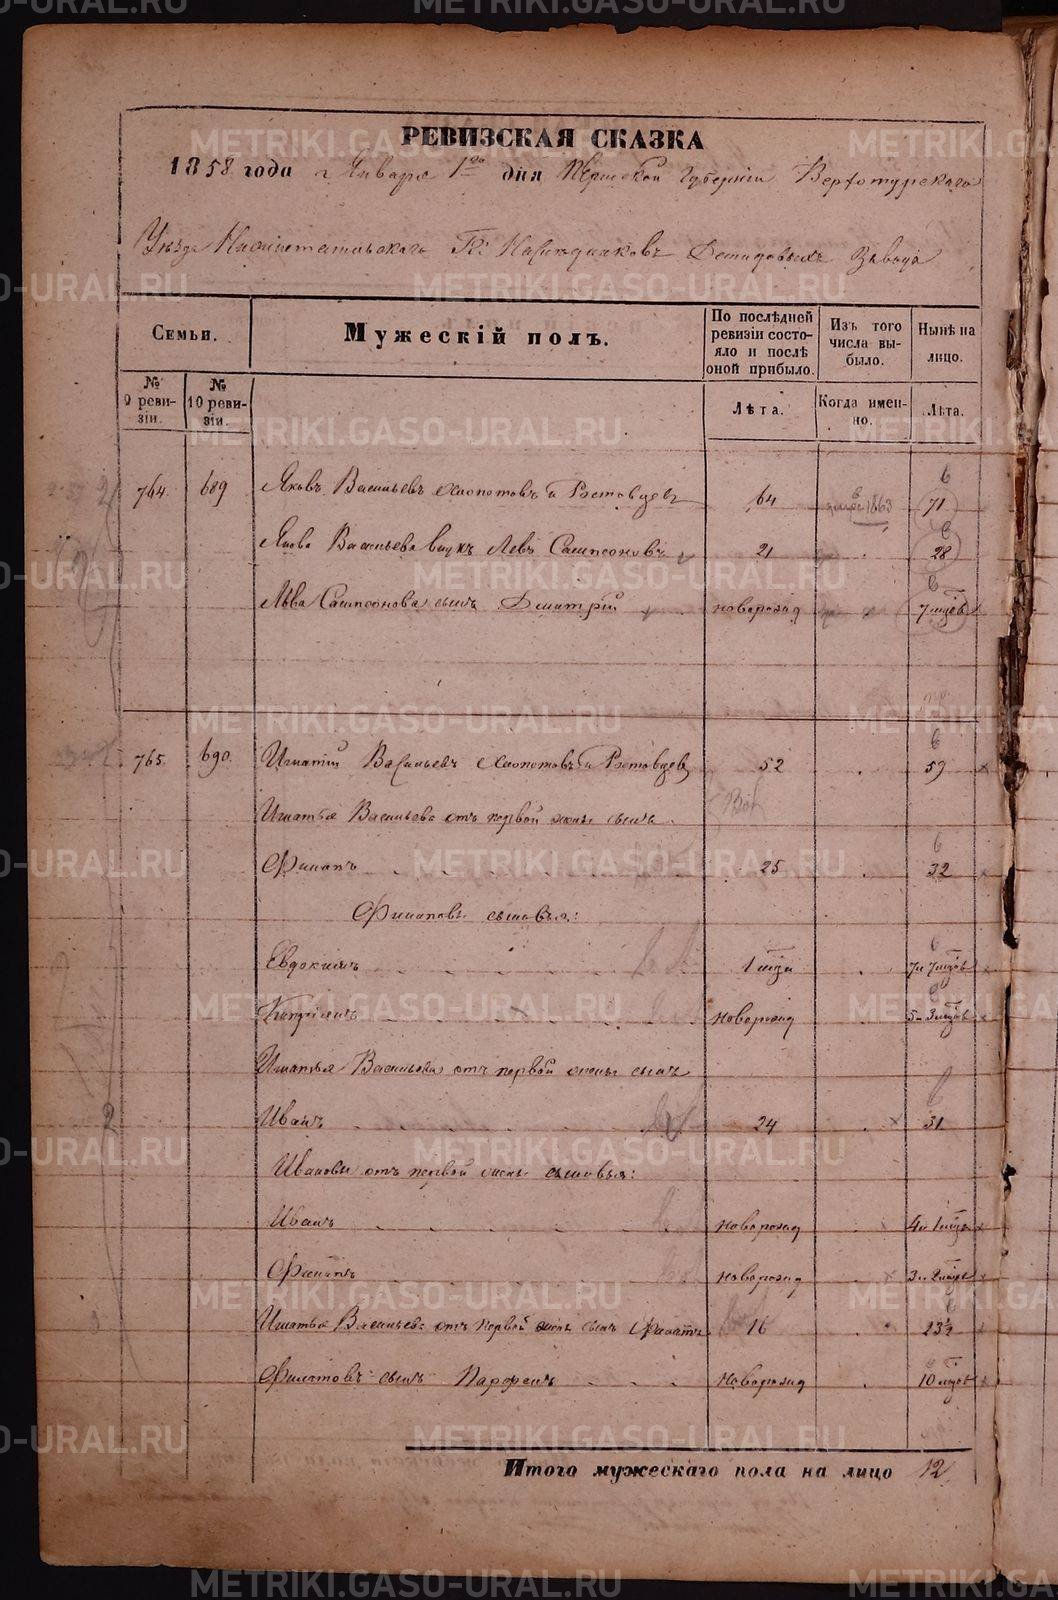 РЕВИЗСКАЯ СКАЗКА
1858 года Января 1го дня Пермской Губернiи Верхотурскаго
Уѣзда Нижнетагильскаго Гг: Наслѣдниковъ Демидовыхъ Завода
Семьи.
Мужескiй полъ.
По послѣдней ревизiи состояло и послѣ оной прибыло.
Изъ того числа выбыло.
Нынѣ на лицо.
№ 9 ревизiи.
№ 10 ревизiи.
Лѣта.
Когда именно.
Лѣта.
764. 689 Яковъ Васильевъ и Ростовцевъ 64 1863 71
Якова Васильева внукъ Левъ Сампсоновъ 21 28
Льва Сампсонова сынъ Дмитрiй новорожд 7 мцѣв
765. 690. Игнатiй Васильевъ и Ростовцевъ 52 59
Игнатья Васильева отъ первой жены сынъ
Филипъ 25 32
Филиповы сыновья:
Евдокимъ 1 мца 7 и 7 мцѣв
новорожд 5 и 3 мцѣв
Игнатья Васильева отъ первой жены сынъ
Иванъ 24 31
Ивановы отъ первой жены сыновья:
Иванъ новорожд 4 и 1 мцъ
Филипъ новорожд 3 и 2 мцѣв
Игнатья Васильева отъ первой жены сынъ Филатъ 16 23½
Филатовъ сынъ Парфенъ новорожд 10 мцѣв
Итого мужескаго пола на лицо 12
METRIKI.GASO-URAL.RU